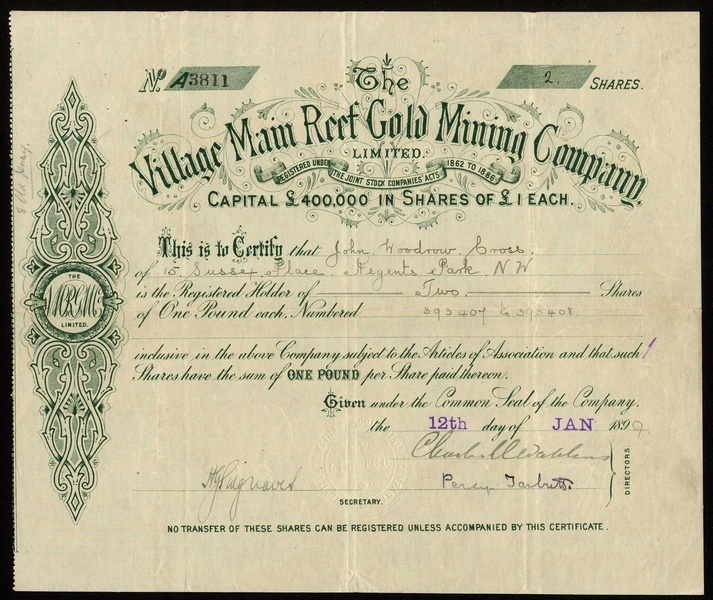 No A3811
2. SHARES.
The
Village Main Reef Gold Mining Company,
LIMITED.
REGISTERED UNDER THE JOINT STOCK COMPANIES' ACTS 1862 TO 1886
CAPITAL £400,000 IN SHARES OF £1 EACH.
This is to Certify that John Woodrow Cross.
of 15 Sussex Place Regents Park N W
is the Registered Holder of Two. Shares
of One Pound each, Numbered 393407 to 393408.
inclusive, in the above Company subject to the Articles of Association and that such
Shares have the sum of ONE POUND per Share paid thereon.
Given under the Common Seal of the Company,
the 12th day of JAN 1899.
Percy Tarbutt.
DIRECTORS
SECRETARY.
NO TRANSFER OF THESE SHARES CAN BE REGISTERED UNLESS ACCOMPANIED BY THIS CERTIFICATE.
THE
LIMITED.